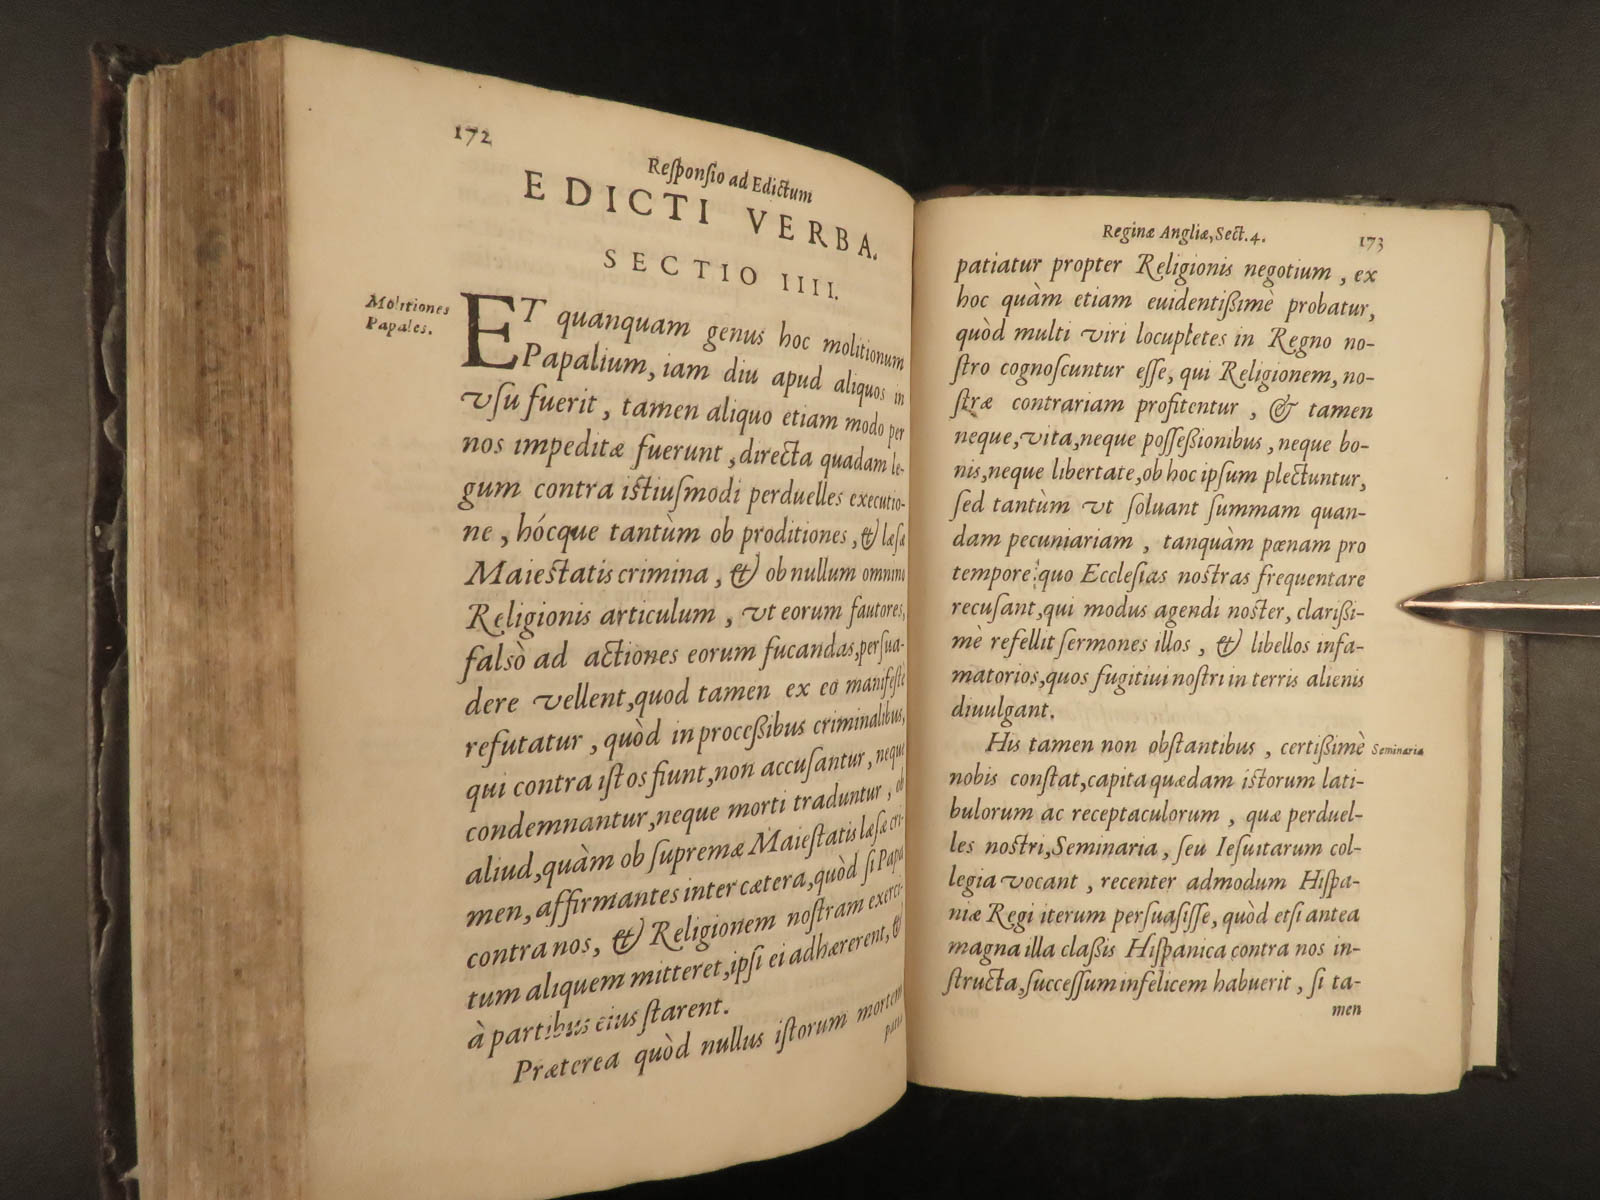 172
Responsio ad Edictum
EDICTI VERBA.
SECTIO IIII.
Molitiones
Papales.
ET quanquam genus hoc molitionum
Papalium, iam diu apud aliquos in
vsu fuerit, tamen aliquo etiam modo per
nos impeditæ fuerunt, directa quadam le-
gum contra istiusmodi perduelles executio-
ne, hócque tantùm ob proditiones, & læsæ
Maiestatis crimina, & ob nullum omnino
Religionis articulum, vt eorum fautores,
falsò ad actiones eorum fucandas, persua-
dere vellent, quod tamen ex eo manifestè
refutatur, quòd in processibus criminalibus,
qui contra istos fiunt, non accusantur, neque
condemnantur, neque morti traduntur, ob
aliud, quàm ob supremæ Maiestatis læsæ cri-
men, affirmantes inter cætera, quòd si Papa
contra nos, & Religionem nostram exerci-
tum aliquem mitteret, ipsi ei adhærerent, &
à partibus eius starent.
Præterea quòd nullus istorum mortem
Reginæ Angliæ, Sect. 4.
173
patiatur propter Religionis negotium, ex
hoc quàm etiam euidentissimè probatur,
quòd multi viri locupletes in Regno no-
stro cognoscuntur esse, qui Religionem, no-
stræ contrariam profitentur, & tamen
neque, vita, neque possessionibus, neque bo-
nis, neque libertate, ob hoc ipsum plectuntur,
sed tantùm vt soluant summam quan-
dam pecuniariam, tanquàm pœnam pro
tempore; quo Ecclesias nostras frequentare
recusant, qui modus agendi noster, clarissi-
mè refellit sermones illos, & libellos infa-
matorios, quos fugitiui nostri in terris alienis
diuulgant.
His tamen non obstantibus, certissimè
Seminaria
nobis constat, capita quædam istorum lati-
bulorum ac receptaculorum, quæ perduel-
les nostri, Seminaria, seu Iesuitarum col-
legia vocant, recenter admodum Hispa-
niæ Regi iterum persuasisse, quòd etsi antea
magna illa classis Hispanica contra nos in-
structa, successum infelicem habuerit, si ta-
men